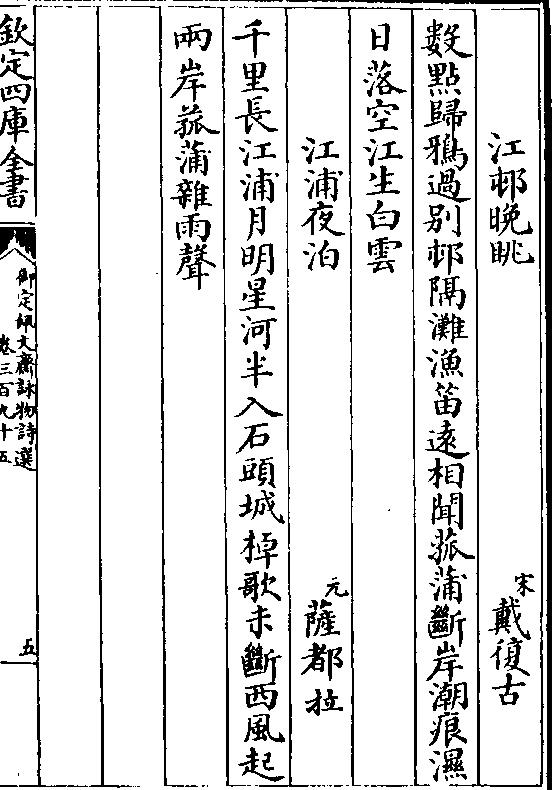 江邨晚眺 宋 戴復古
數點歸鴉過别邨隔灘漁笛逺相聞菰蒲斷岸潮痕濕
日落空江生白雲
江浦夜泊 元 薩都拉
千里長江浦月明星河半入石頭城棹歌未斷西風起
兩岸菰蒲雜雨聲
欽定四庫全書
御定佩文齋詠物詩選
卷三百九十五
五